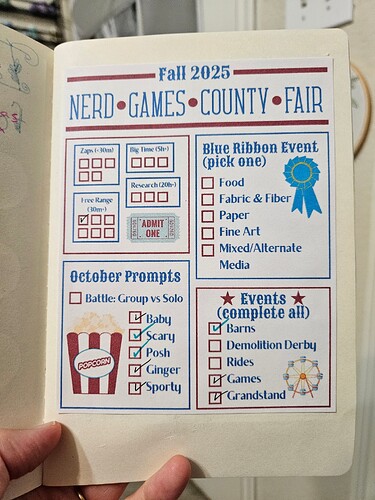 Fall 2025
NERD•GAMES•COUNTY•FAIR
Zaps (~30m)
Big Time (5h+)
Research (20h+)
Free Range
(30m+)
ADMIT
ONE
Blue Ribbon Event
(pick one)
Food
Fabric & Fiber
Paper
Fine Art
Mixed/Alternate
Media
October Prompts
Battle: Group vs Solo
Baby
Scary
Posh
Ginger
Sporty
POPCORN
★ Events ★
(complete all)
Barns
Demolition Derby
Rides
Games
Grandstand